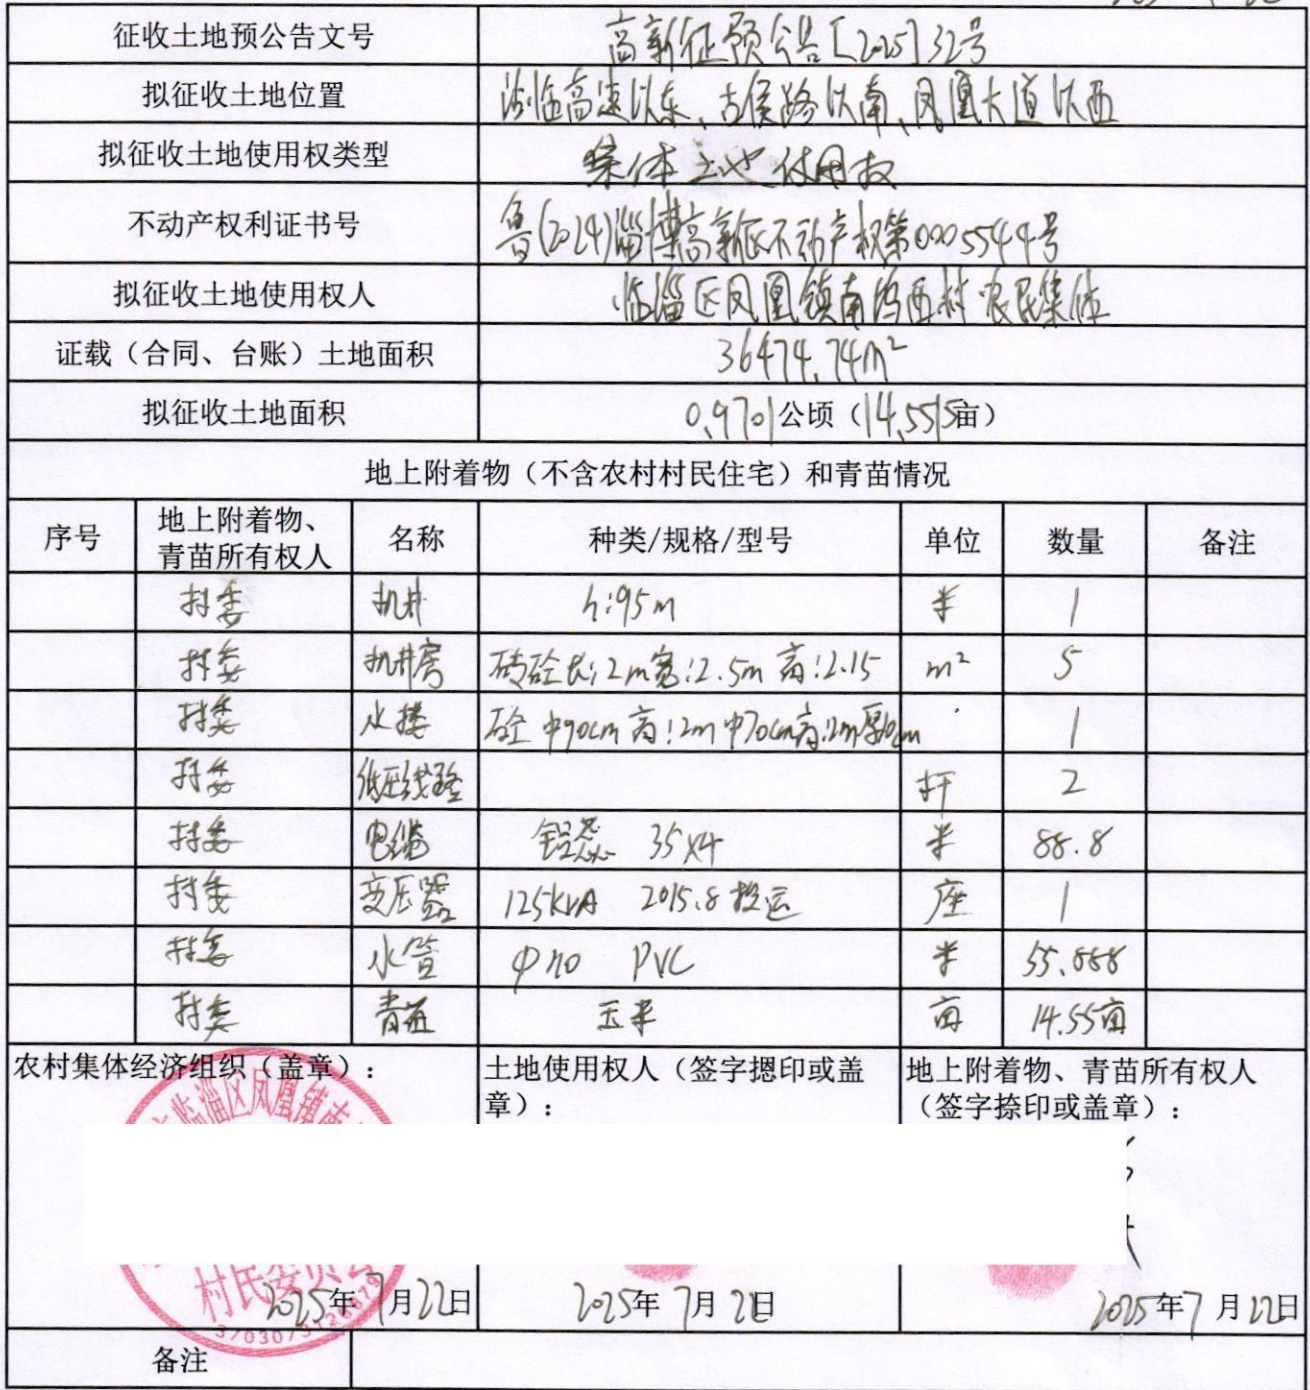 征收土地预公告文号 高新征预公告[2025]32号
拟征收土地位置 沾临高速以东、古侯路以南、凤凰大道以西
拟征收土地使用权类型 集体土地使用权
不动产权利证书号 鲁(2024)淄博高新区不动产权第0005544号
拟征收土地使用权人 临淄区凤凰镇南坞西村农民集体
证载（合同、台账）土地面积 36474.74m²
拟征收土地面积 0.9701公顷（14.5515亩）
地上附着物（不含农村村民住宅）和青苗情况
序号 地上附着物、青苗所有权人 名称 种类/规格/型号 单位 数量 备注
村委 机井 h:95m 米 1
村委 机井房 砖砼长:2m宽:2.5m 高:2.15 m² 5
村委 水楼 砼 φ90cm 高:2m φ70cm高:2m厚10cm 1
村委 低压线路 杆 2
村委 电缆 铝芯 35×4 米 88.8
村委 变压器 125kVA 2015.8投运 座 1
村委 水管 φ110 PVC 米 55.888
村委 青苗 玉米 亩 14.55亩
农村集体经济组织（盖章）：
土地使用权人（签字摁印或盖
章）：
地上附着物、青苗所有权人
（签字捺印或盖章）：
临淄区凤凰镇南
村民委员会
2025年7月22日 2025年7月22日 2025年7月22日
备注